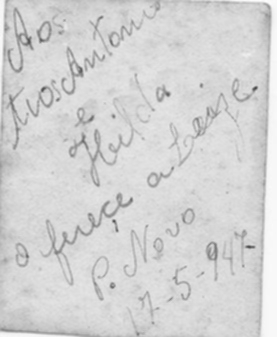 Aos
tios Antonio
e
Hilda
o ferece a
P. Novo
17-5-947-